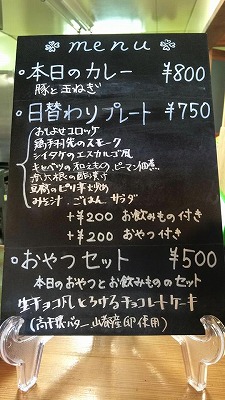 menu
•本日のカレー ¥800
豚と玉ねぎ
•日替わりプレート ¥750
おしよせコロッケ
鶏手羽先のスモーク
シイタケのエスカルゴ風
キャベツの和えもの ピーマン佃煮
豆腐のピリ辛炒め
みそ汁、ごはん、サラダ
+¥200 お飲みもの付き
+¥200 おやつ付き
•おやつセット ¥500
本日のおやつとお飲みもののセット
生チョコ風とろけるチョコレートケーキ